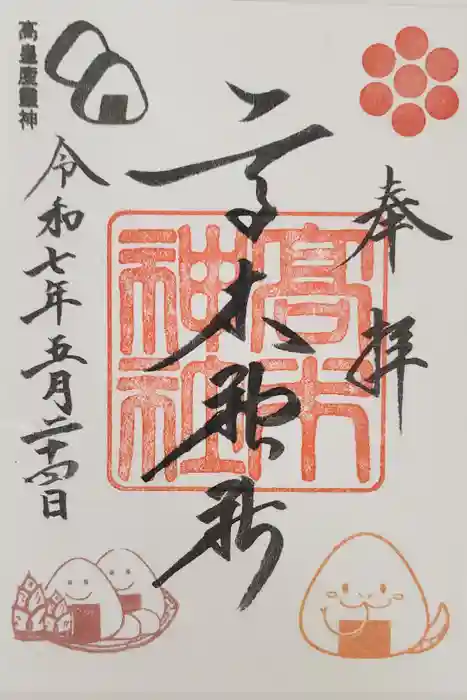 奉拝
高木神社
高木
神社
高皇産靈神
令和七年五月二十四日